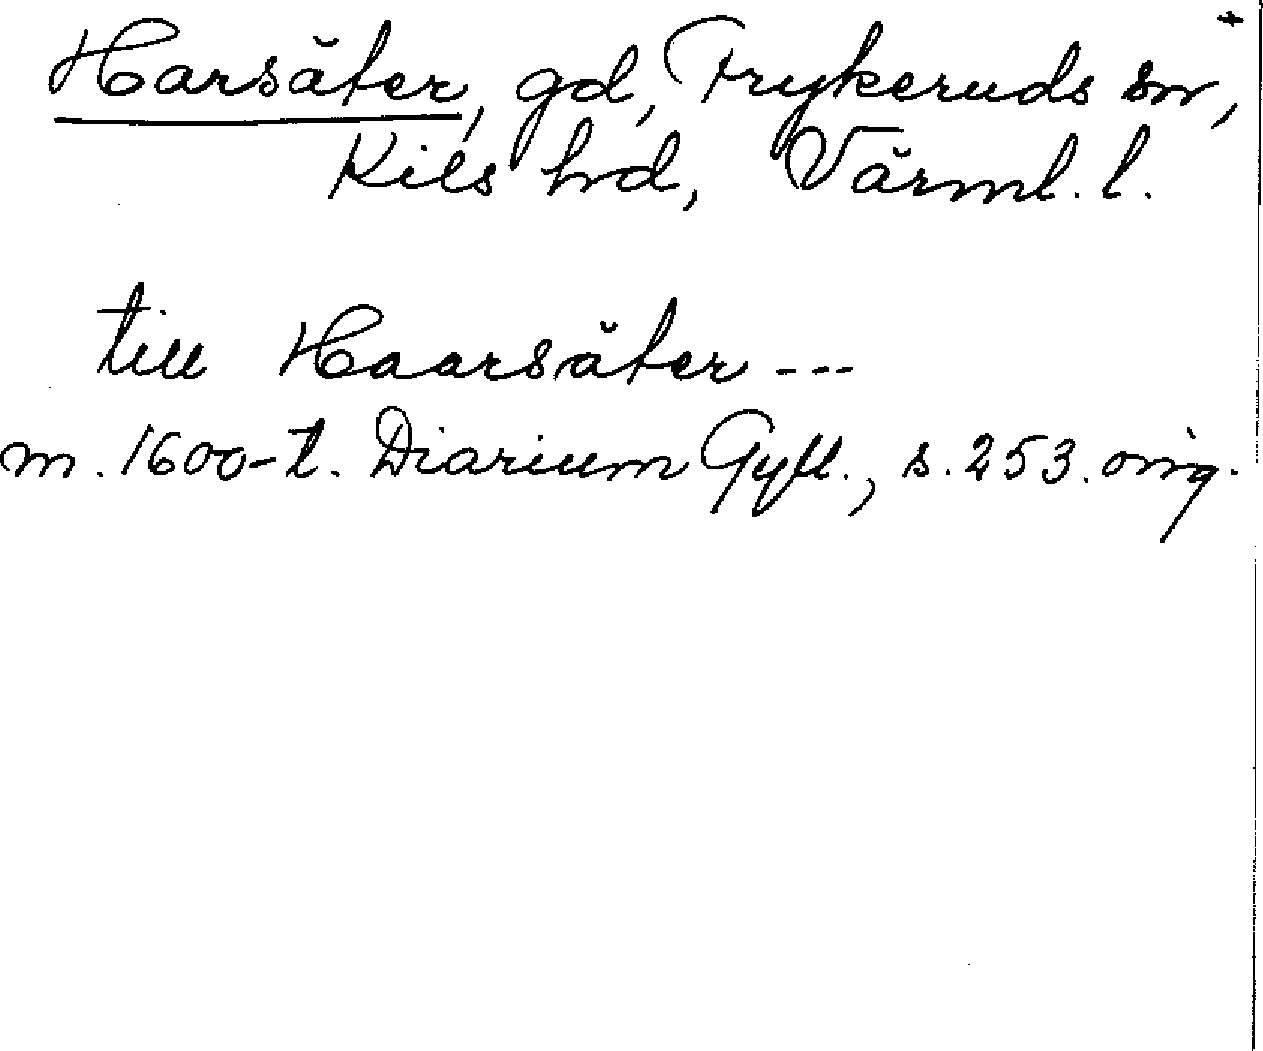 Harsäter, gd, Frykeruds sn, +
Kils hd, Värml. l.
till Haarsäter ---
m. 1600-t. Diarium Gyll., s. 253. orig.